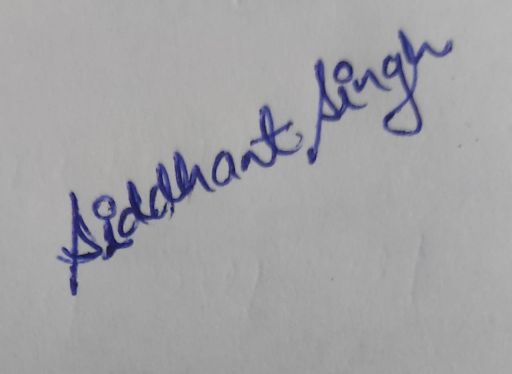 Siddhant Singh